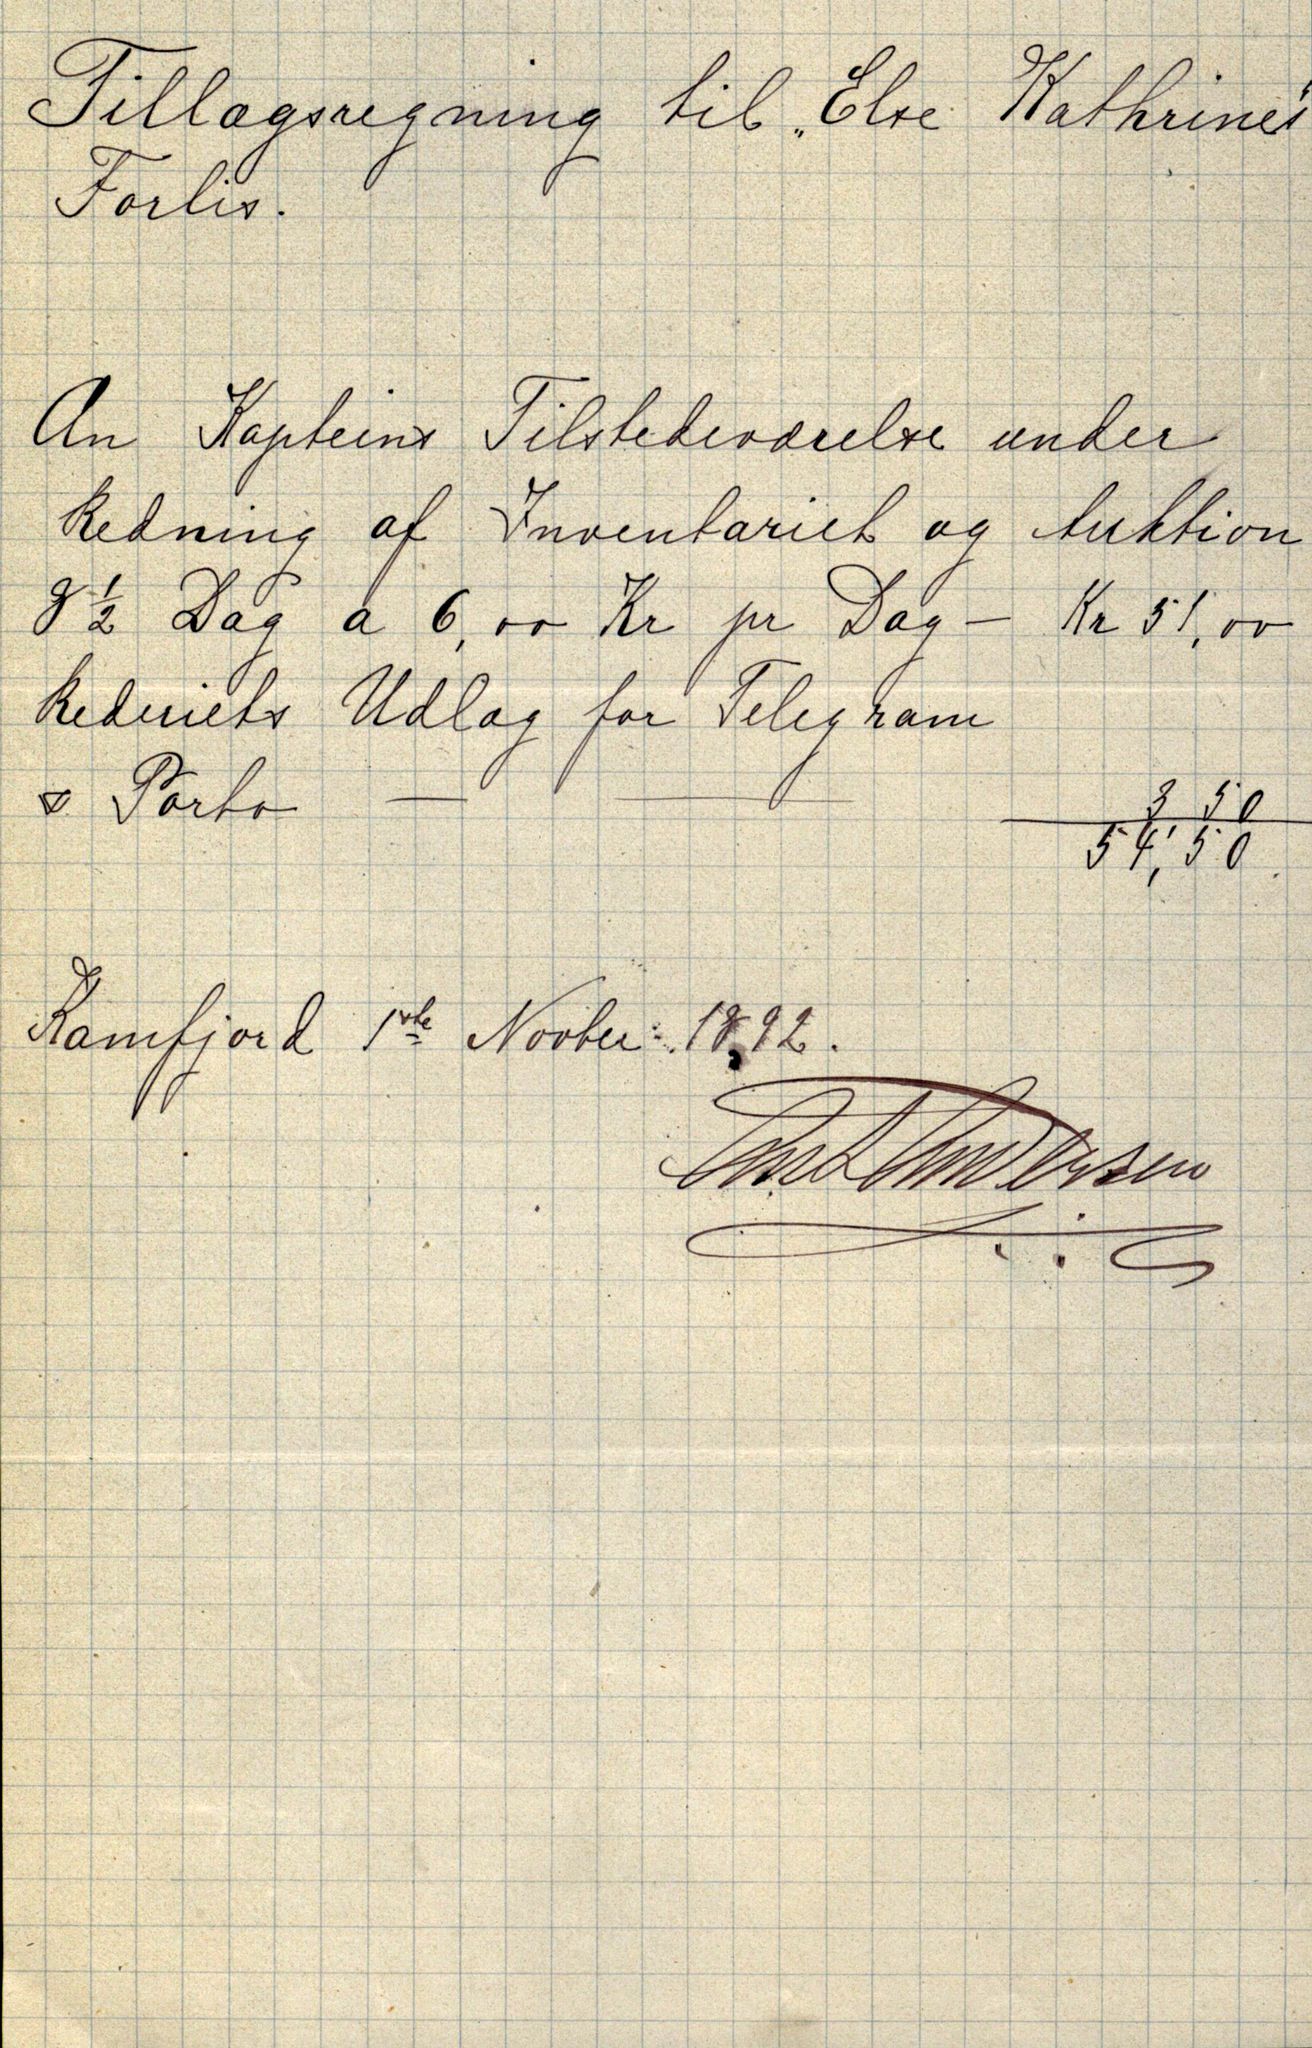 Tillægsregning til „Else Kathrine's
Forlis.
An Kapteins Tilstedeværelse under
Redning af Inventariet og Auktion
8 1/2 Dag a 6,00 Kr pr Dag — Kr 51,00
Rederiets Udlæg for Telegram
& Porto — — 3 50
54,50.
Ramfjord 1ste Novber 1892.
Andersen